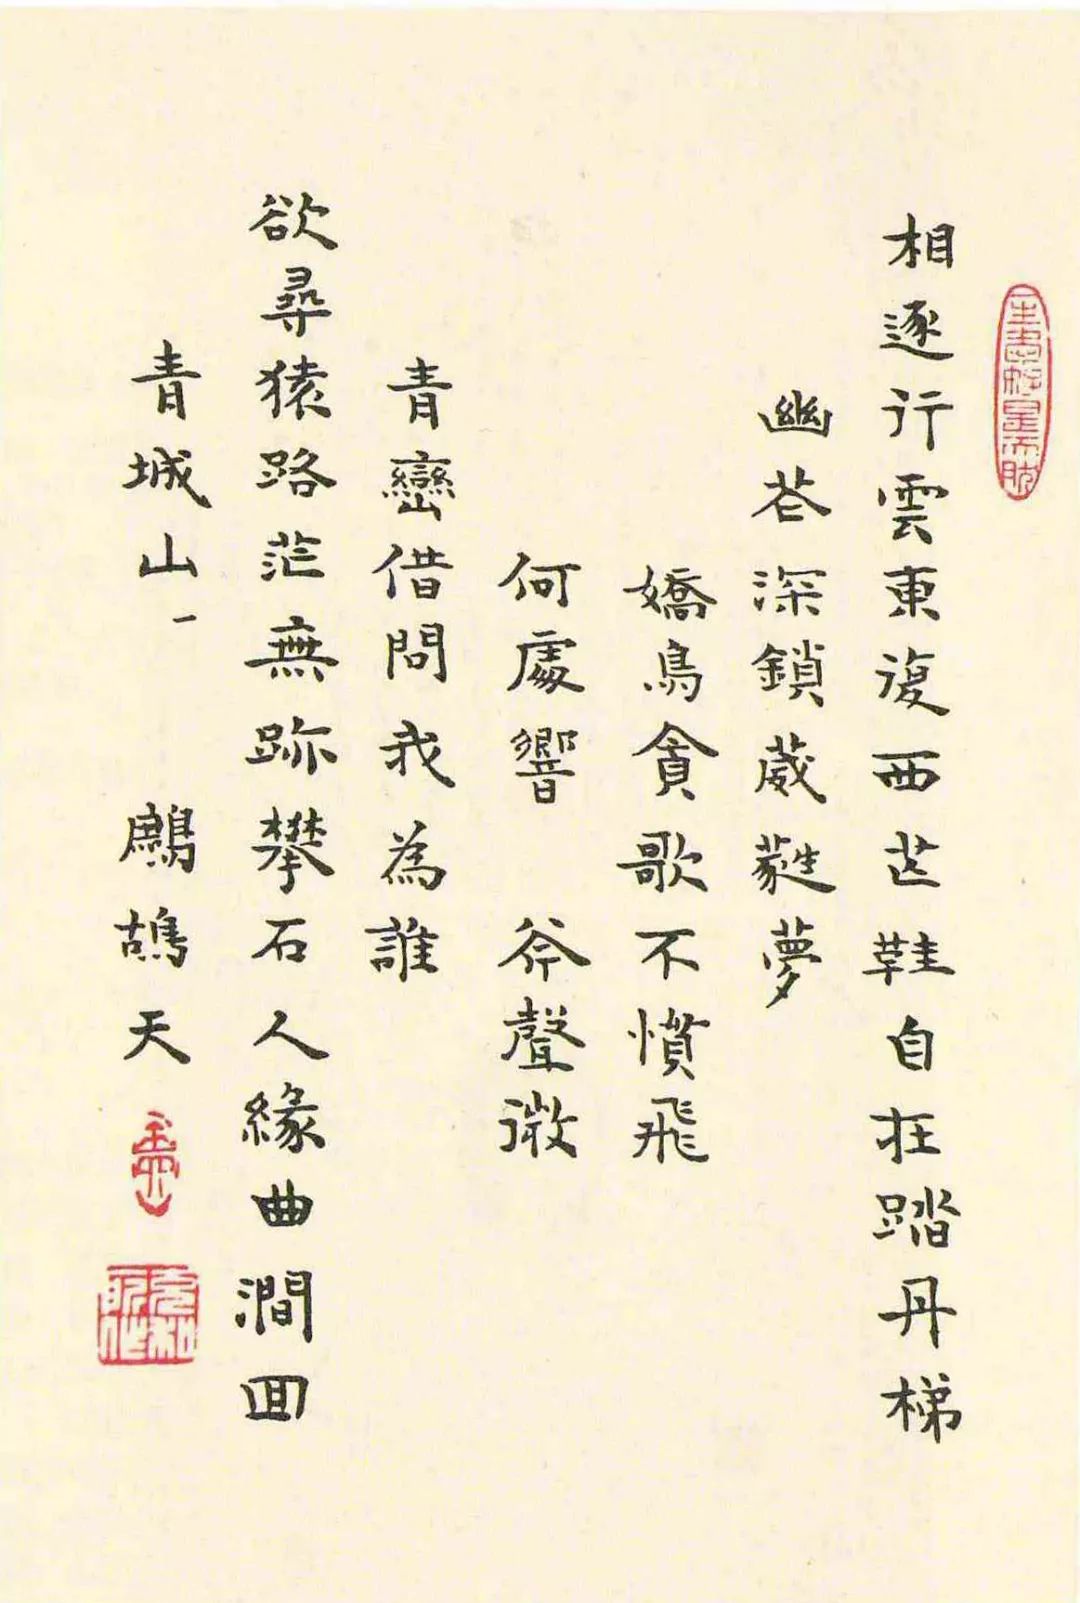 相逐行雲東復西芒鞋自在踏丹梯
幽花深鎖葳蕤夢
嬌鳥貪歌不憤飛
何處響 斧聲微
青巒借問我為誰
欲尋猿路茫無跡攀石人緣曲澗回
青城山一 鷓鴣天